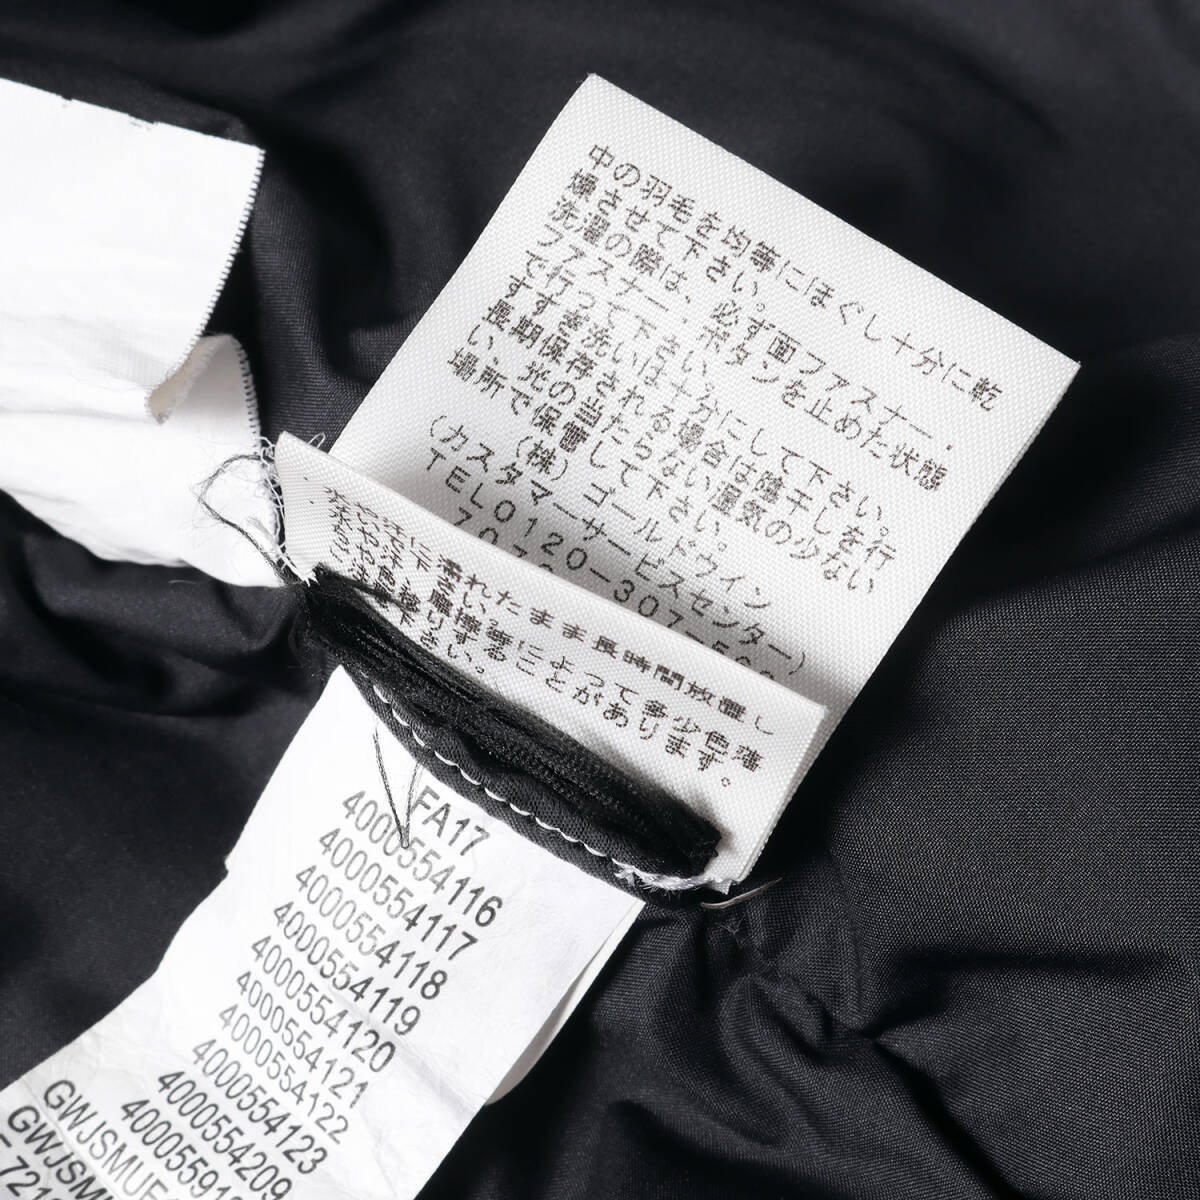 中の羽毛を均等にほぐし十分に乾
燥させて下さい。
洗濯の際は、必ず面ファスナー・
ファスナー・ボタンを止めた状態
で行って下さい。
すすぎ洗いは十分にして下さい。
長期保存される場合は陰干しを行
い、光の当たらない湿気の少ない
場所で保管して下さい。
(株)ゴールドウイン
(カスタマーサービスセンター)
TEL0120-307-560
濡れたまま長時間放置し
摩擦等によって多少色落
することがあります。
下さい。
FA17
4000554116
4000554117
4000554118
4000554119
4000554120
4000554121
4000554122
4000554123
4000554209
40005591
GWJSMUF
GWJSM